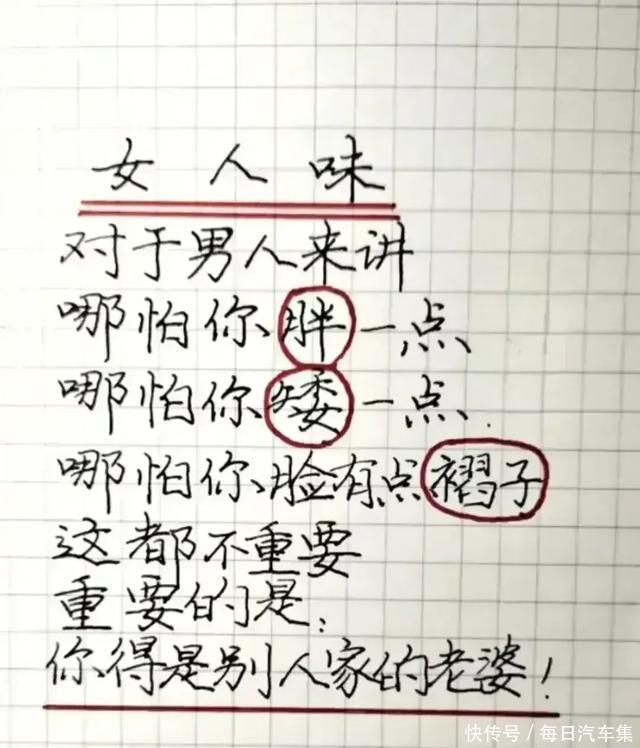 女人味
对于男人来讲
哪怕你胖一点
哪怕你矮一点
哪怕你脸有点褶子
这都不重要
重要的是:
你得是别人家的老婆!
快传号/每日汽车集